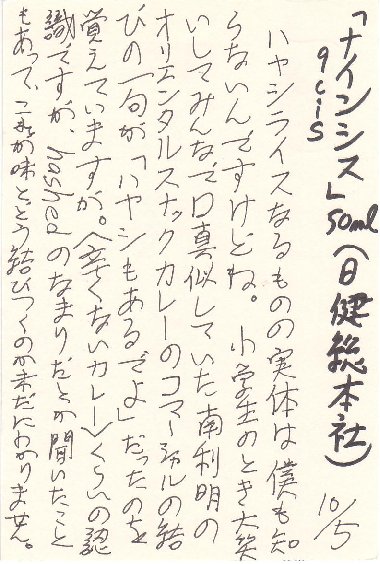 「ナインシス」50ml(日健総本社)
9cis
10/5
ハヤシライスなるものの実体は僕も知
らないんですけどね。小学生のとき大笑
いしてみんなで口真似していた南利明の
オリエンタルスナックカレーのコマーシャルの結
びの一句が「ハヤシもあるでよ」だったのを
覚えていますが。〈辛くないカレー〉くらいの認
識ですが hashed のなまりだとか聞いたこと
もあって、これが味とどう結びつくのか未だにわかりません。